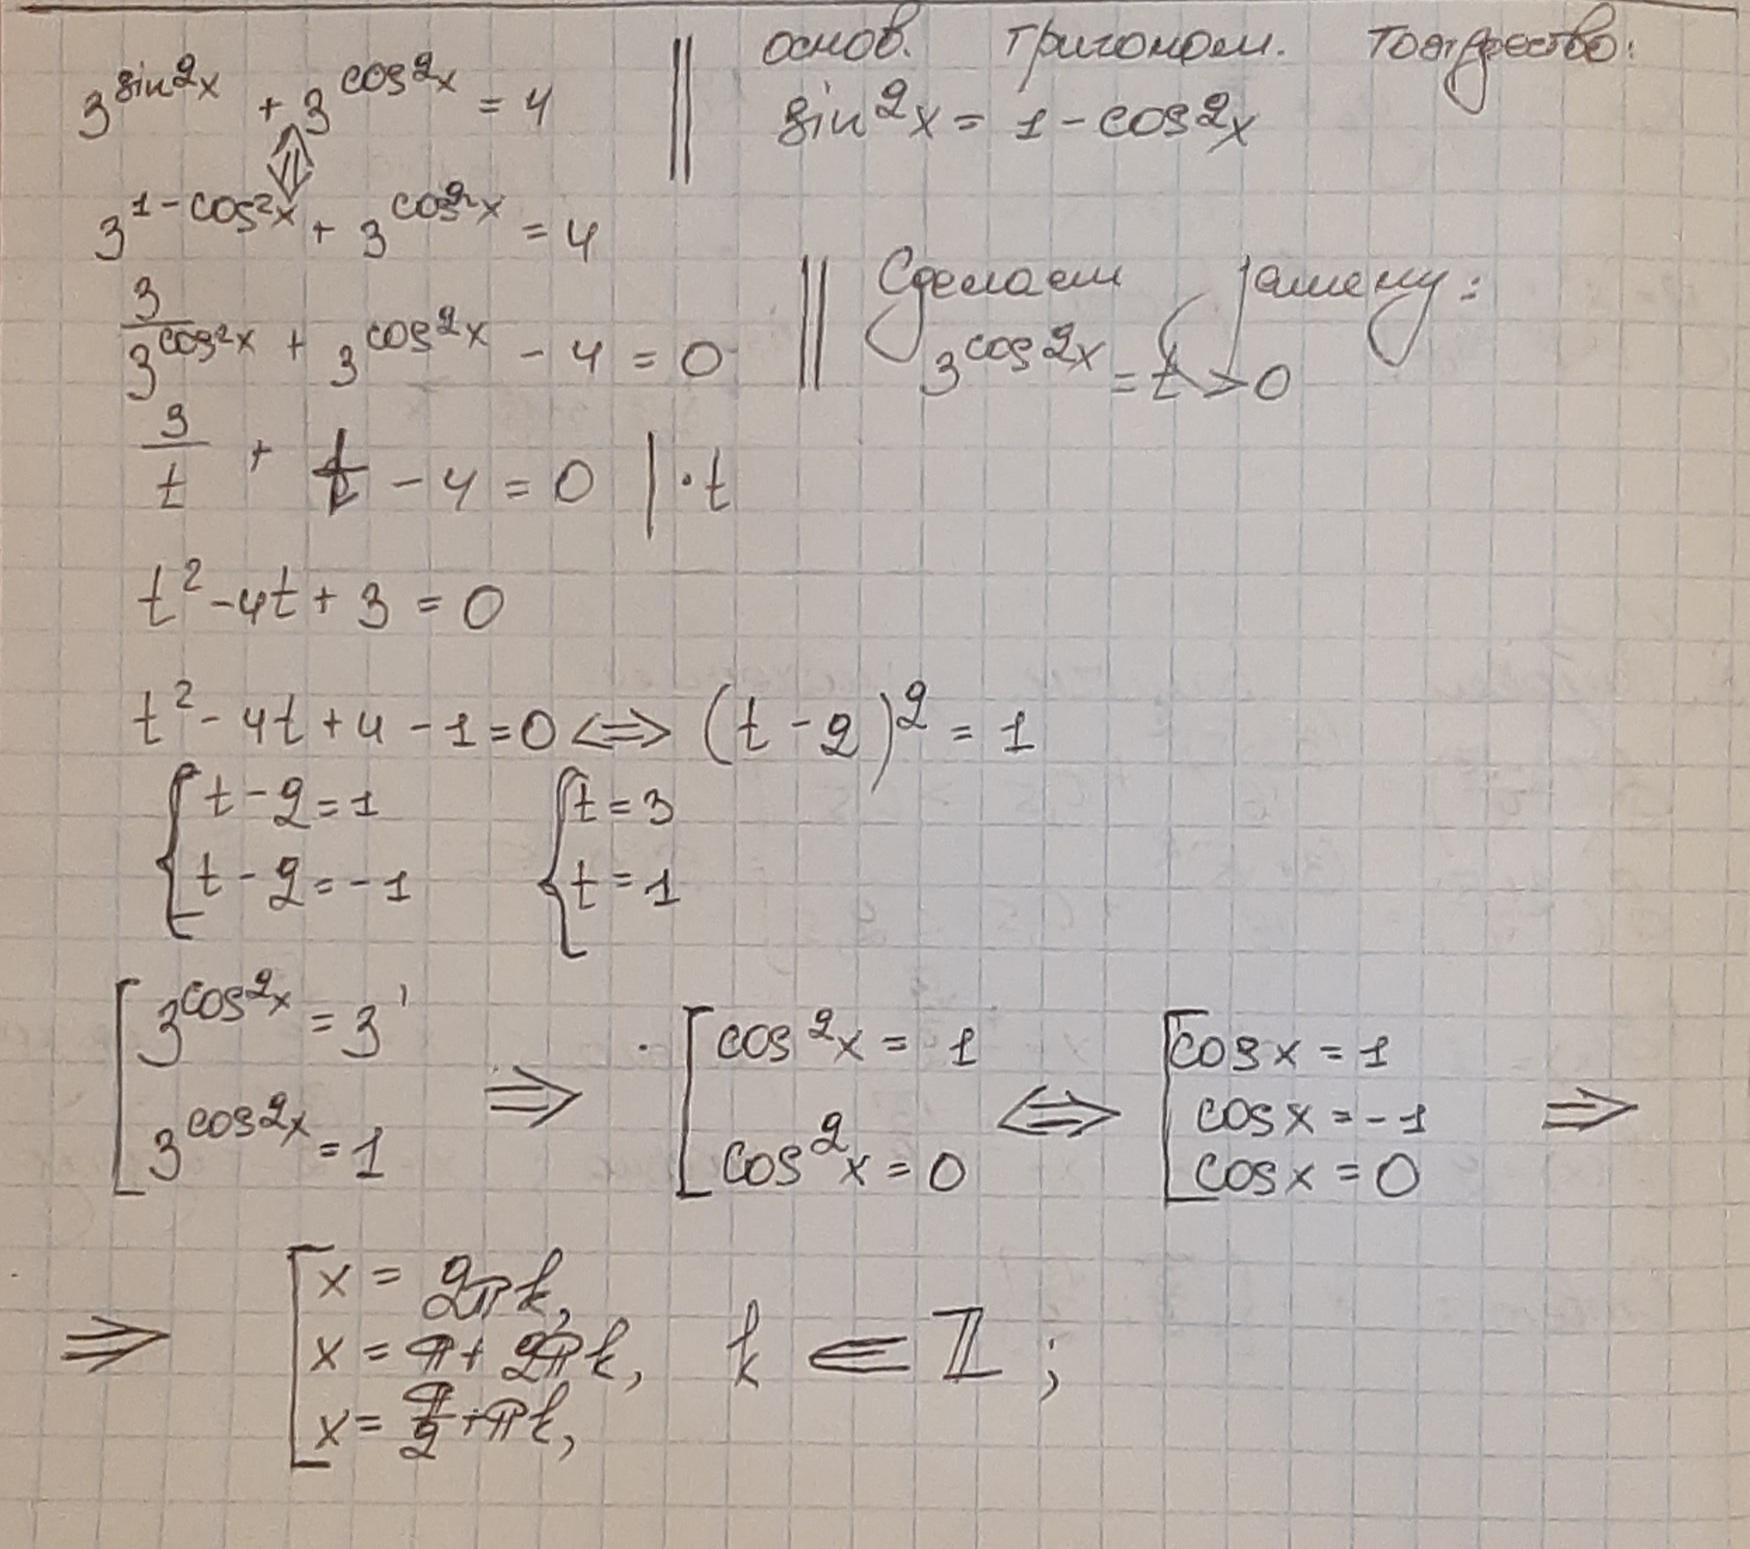 3^{sin²x} + 3^{cos²x} = 4 || основ. тригоном. тождество:
sin²x = 1 - cos²x
⇕
3^{1-cos²x} + 3^{cos²x} = 4
3/3^{cos²x} + 3^{cos²x} - 4 = 0 || Сделаем замену:
3^{cos²x} = t > 0
3/t + t - 4 = 0 | · t
t² - 4t + 3 = 0
t² - 4t + 4 - 1 = 0 ⇔ (t - 2)² = 1
{ t - 2 = 1 { t = 3
t - 2 = -1 t = 1
[ 3^{cos²x} = 3¹ ⇒ [ cos²x = 1 ⇔ [ cosx = 1
cosx = -1 ⇒
3^{cos²x} = 1 cos²x = 0 cosx = 0
⇒ [ x = 2πk,
x = π + 2πk, k ∈ ℤ;
x = π/2 + πk,